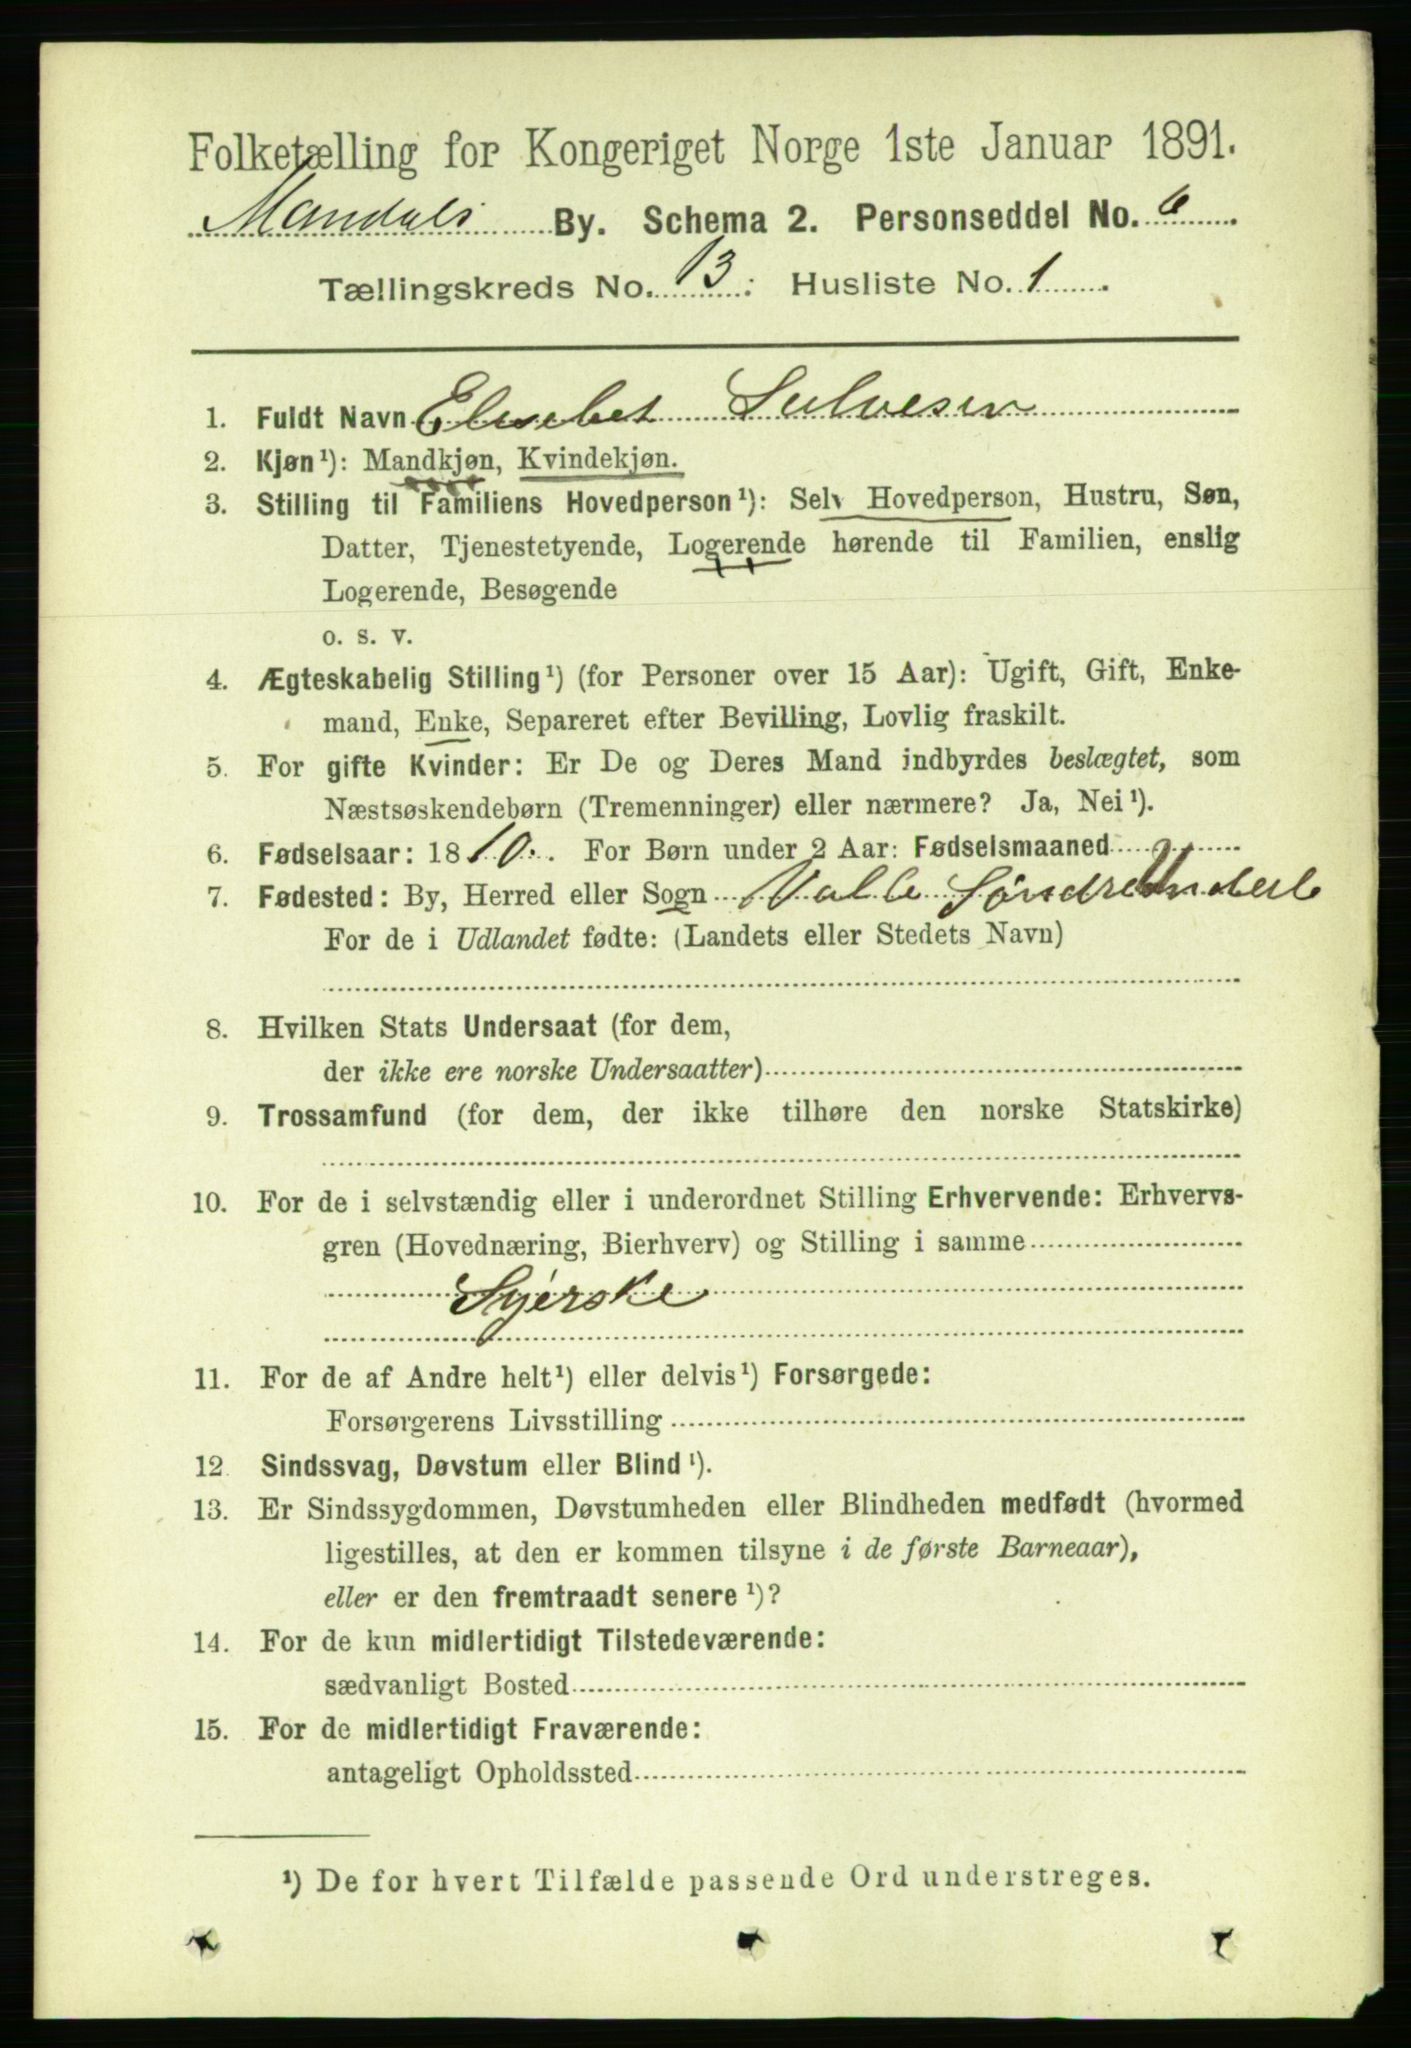 Folketælling for Kongeriget Norge 1ste Januar 1891.
Mandals By. Schema 2. Personseddel No. 6
Tællingskreds No. 13: Husliste No. 1
1. Fuldt Navn Elisebet Salvesen
2. Kjøn¹): Mandkjøn, Kvindekjøn.
3. Stilling til Familiens Hovedperson¹): Selv Hovedperson, Hustru, Søn,
Datter, Tjenestetyende, Logerende hørende til Familien, enslig
Logerende, Besøgende
o. s. v.
4. Ægteskabelig Stilling¹) (for Personer over 15 Aar): Ugift, Gift, Enke-
mand, Enke, Separeret efter Bevilling, Lovlig fraskilt.
5. For gifte Kvinder: Er De og Deres Mand indbyrdes beslægtet, som
Næstsøskendebørn (Tremenninger) eller nærmere? Ja, Nei¹).
6. Fødselsaar: 1810. For Børn under 2 Aar: Fødselsmaaned
7. Fødested: By, Herred eller Sogn Valle Søndre
For de i Udlandet fødte: (Landets eller Stedets Navn)
8. Hvilken Stats Undersaat (for dem,
der ikke ere norske Undersaatter)
9. Trossamfund (for dem, der ikke tilhøre den norske Statskirke)
10. For de i selvstændig eller i underordnet Stilling Erhvervende: Erhvervs-
gren (Hovednæring, Bierhverv) og Stilling i samme
Syerske
11. For de af Andre helt¹) eller delvis¹) Forsørgede:
Forsørgerens Livsstilling
12. Sindssvag, Døvstum eller Blind¹).
13. Er Sindssygdommen, Døvstumheden eller Blindheden medfødt (hvormed
ligestilles, at den er kommen tilsyne i de første Barneaar),
eller er den fremtraadt senere¹)?
14. For de kun midlertidigt Tilstedeværende:
sædvanligt Bosted
15. For de midlertidigt Fraværende:
antageligt Opholdssted
¹) De for hvert Tilfælde passende Ord understreges.